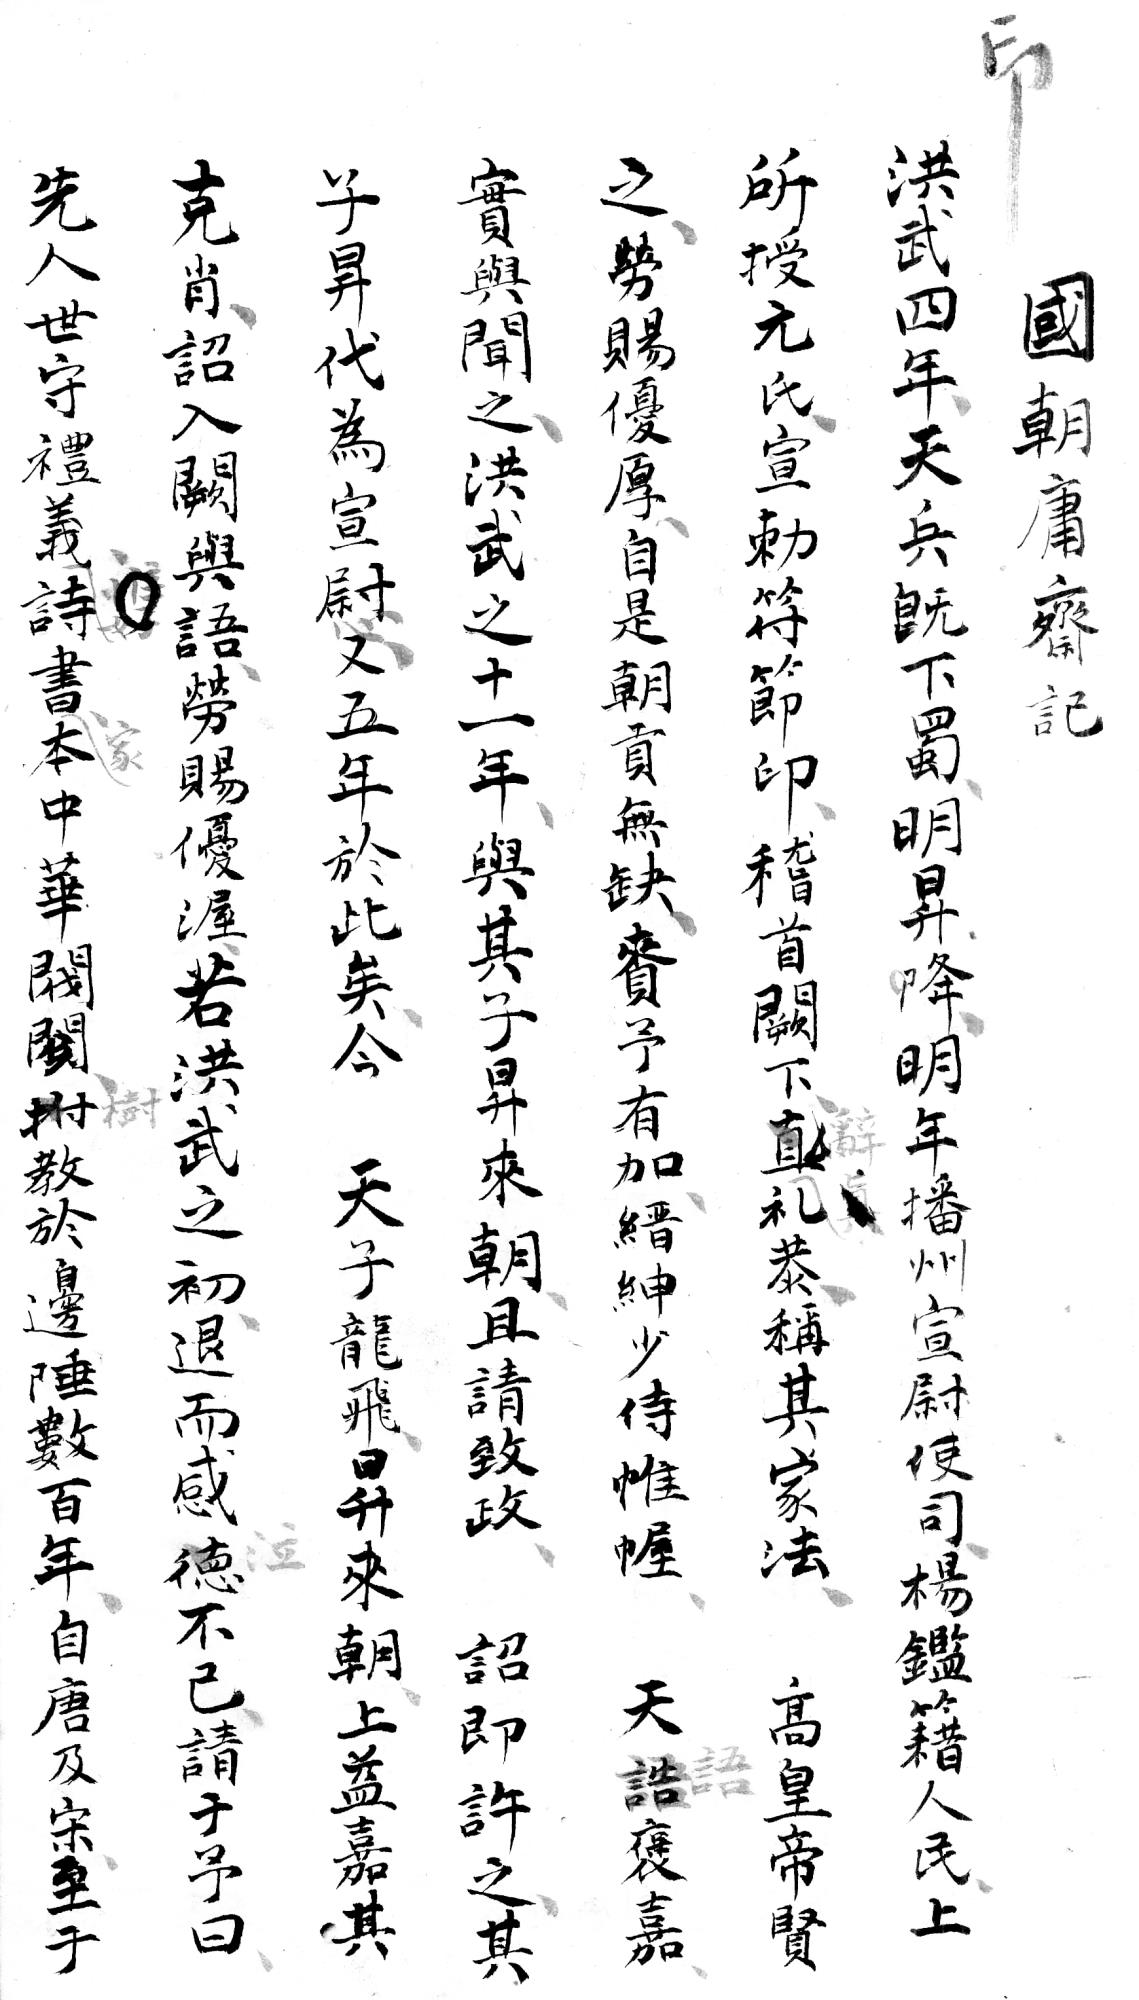 印
國朝庸齋記
洪武四年天兵既下蜀明昇降明年播州宣尉使司楊鑑籍人民上
所授元氏宣勅符節印稽首闕下直礼恭稱其家法　高皇帝賢
辭真
之勞賜優厚自是朝貢無缺賚予有加縉紳少侍帷幄　天誥褒嘉
語
實與聞之洪武之十一年與其子昇來朝且請致政　詔即許之其
子昇代為宣尉又五年於此矣今　天子龍飛昇來朝上益嘉其
克肖詔入闕與語勞賜優渥若洪武之初退而感德不已請于予曰
泣
先人世守禮義詩書本中華閥閱拊教於邊陲數百年自唐及宋至于
家
樹